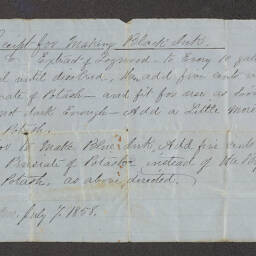 Receipt for Making Black Ink.
Extract of Logwood to Every 10 gal
until disolved, then add five cents
ate of Potash — and fit for use as soon
not dark Enough — Add a Little more
Potash.
to Make Blue Ink, Add five cents
Prussiate of Potash instead of the
Potash, as above directed.
July 7, 1858.